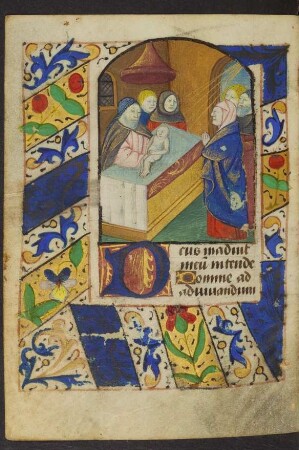 eus in adiut
meū intende
Domine ad
adiuuandum